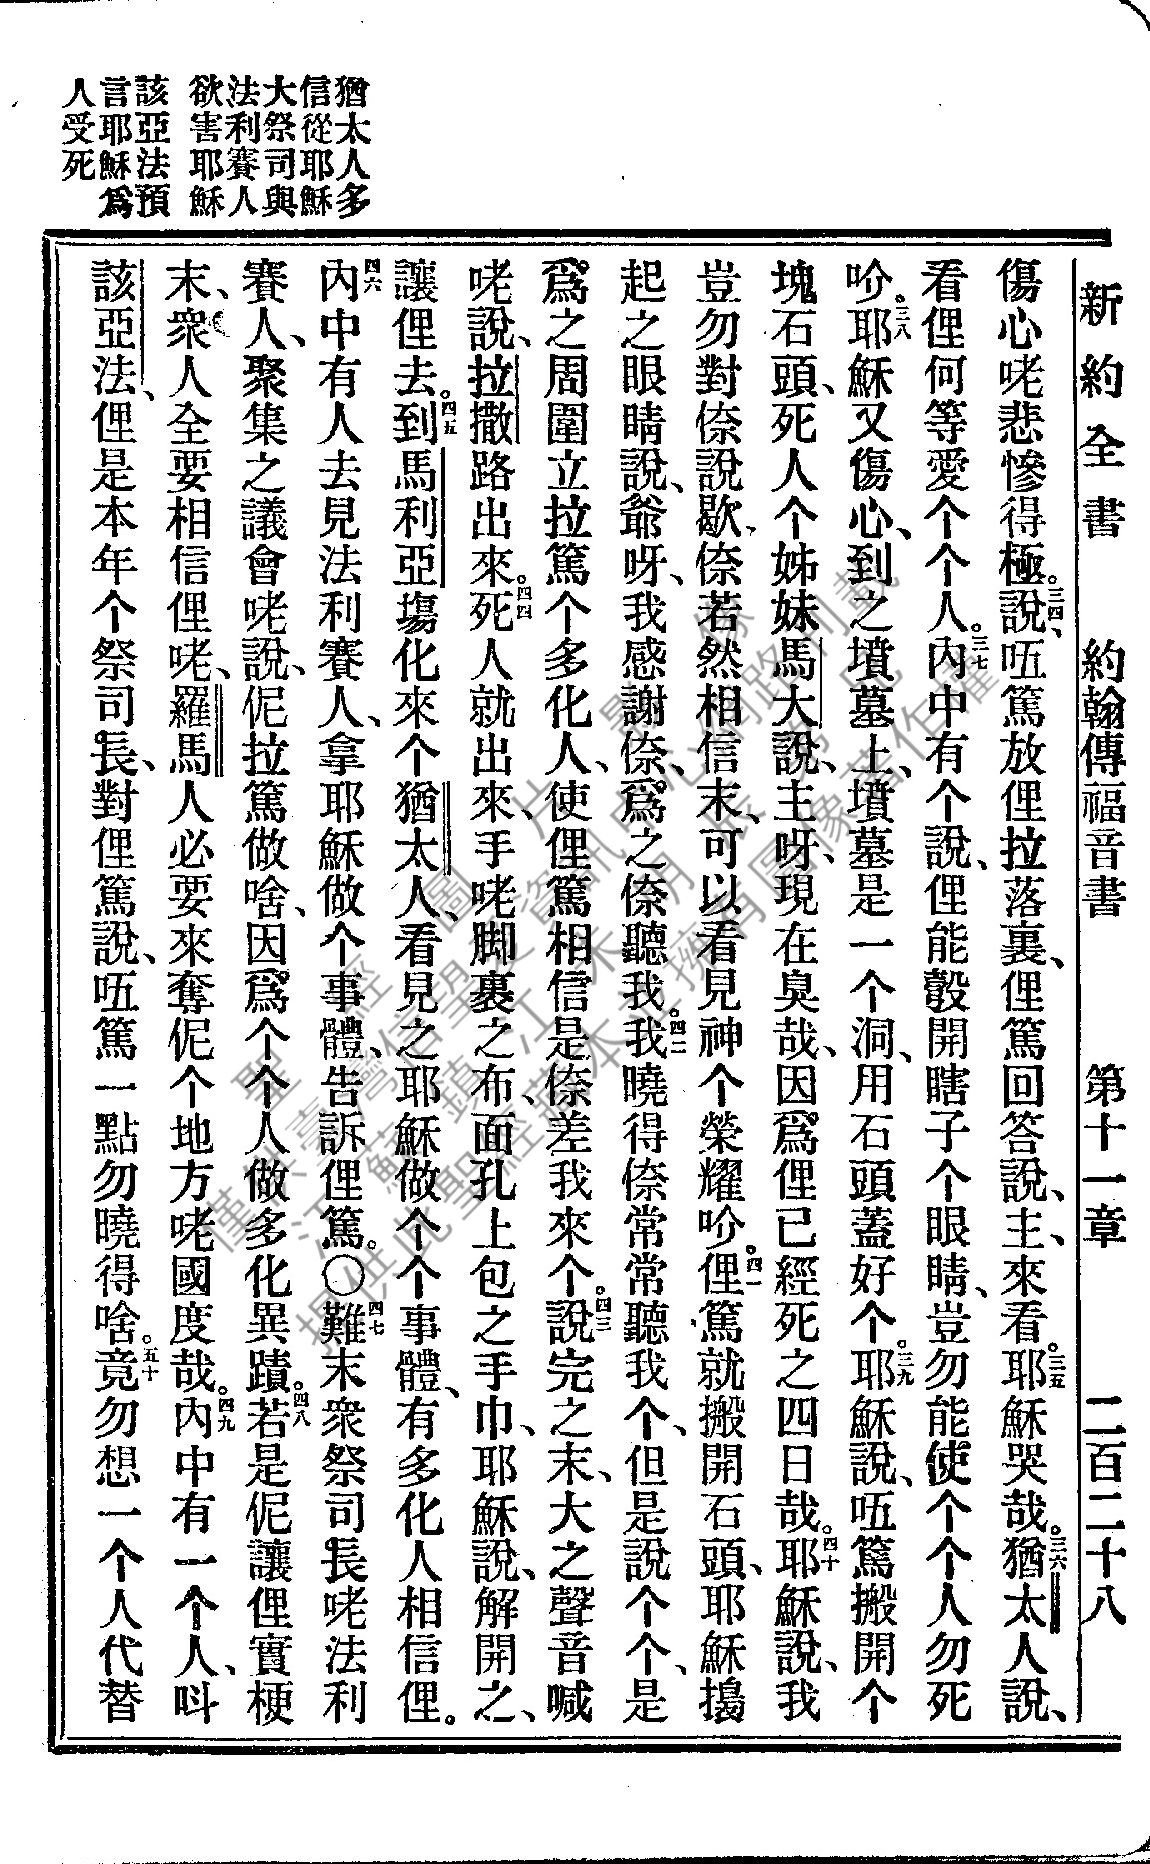 新約全書　約翰傳福音書　第十一章　二百二十八
傷心咾悲慘得極。三四說、𠰻篤放俚拉落裏、俚篤回答說、主、來看。三五耶穌哭哉。三六猶太人說、
看俚何等愛个个人。三七內中有个說、俚能彀開瞎子个眼睛、豈勿能使个个人勿死
吤。三八耶穌又傷心、到之墳墓上、墳墓是一个洞、用石頭蓋好个。三九耶穌說、𠰻篤搬開个
塊石頭、死人个姊妹馬大說、主呀、現在臭哉、因爲俚已經死之四日哉。四十耶穌說、我
豈勿對倷說歇、倷若然相信末、可以看見神个榮耀吤。四一俚篤就搬開石頭、耶穌擡
起之眼睛說、爺呀、我感謝倷、爲之倷聽我。四二我曉得倷常常聽我个、但是說个个、是
爲之周圍立拉篤个多化人、使俚篤相信是倷差我來个。四三說完之末、大之聲音喊
咾說、拉撒路出來。四四死人就出來、手咾脚裹之布、面孔上包之手巾、耶穌說、解開之、
讓俚去。四五到馬利亞塲化來个猶太人、看見之耶穌做个个事體、有多化人相信俚。
四六內中有人去見法利賽人、拿耶穌做个事體、告訴俚篤。〇四七難末衆祭司長咾法利
賽人、聚集之議會咾說、伲拉篤做啥、因爲个个人做多化異蹟。四八若是伲讓俚實梗
末、衆人全要相信俚咾、羅馬人必要來奪伲个地方咾國度哉。四九內中有一个人、呌
該亞法、俚是本年个祭司長、對俚篤說、𠰻篤一點勿曉得啥。五十竟勿想一个人代替
猶太人多
信從耶穌
大祭司與
法利賽人
欲害耶穌
該亞法預
言耶穌爲
人受死